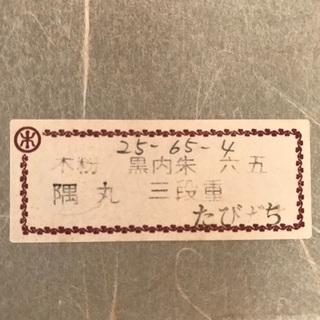 木
25-65-4
木粉 黒内朱 六五
隅丸 三段重
たびぢち